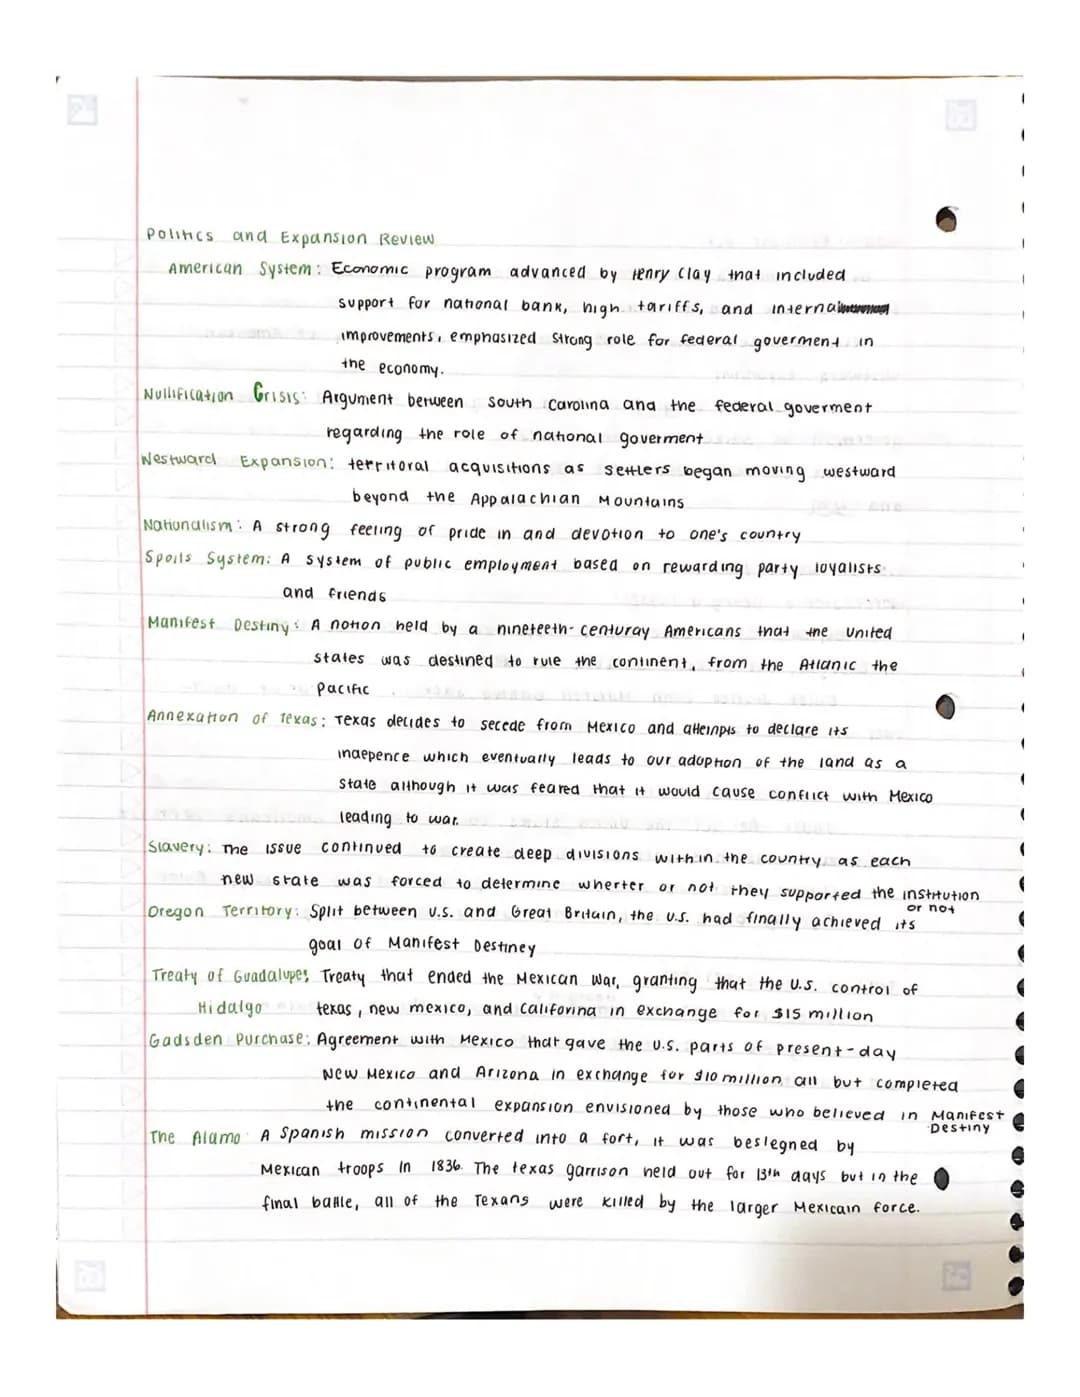 Politics and Expansion Review
American System: Economic program advanced by Henry Clay that included
support for national bank, high tariffs, and internal
improvements, emphasized strong role for federal goverment in
the economy.
Nullification Crisis: Argument between South Carolina and the federal goverment
regarding the role of national goverment
Westward Expansion: territoral acquisitions as settlers began moving westward
beyond the Appalachian Mountains
Nationalism: A strong feeling of pride in and devotion to one's country
Spoils System: A system of public employment based on rewarding party loyalists
and friends
Manifest Destiny: A notion held by a nineteeth-centuray Americans that the United
States was destined to rule the continent, from the Atlanic the
Pacific
Annexation of Texas: Texas decides to secede from Mexico and attempts to declare its
indepence which eventually leads to our adoption of the land as a
State although it was feared that it would cause conflict with Mexico
leading to war.
Slavery: The issue continued to create deep divisions within the country as each
new state was forced to determine wherter or not they supported the institution
or not
Oregon Territory: Split between U.S. and Great Britain, the U.S. had finally achieved its
goal of Manifest Destiney
Treaty of Guadalupe: Treaty that ended the Mexican War, granting that the U.S. control of
Hidalgo texas, new mexico, and Califorina in exchange for $15 million
Gadsden Purchase: Agreement with Mexico that gave the U.S. parts of present-day
New Mexico and Arizona in exchange for $10 million all but completed
the continental expansion envisioned by those who believed in Manifest
Destiny
The Alamo A Spanish mission converted into a fort, it was besiegned by
Mexican troops in 1836. The texas garrison held out for 13th days but in the
final battle, all of the Texans were killed by the larger Mexicain force.